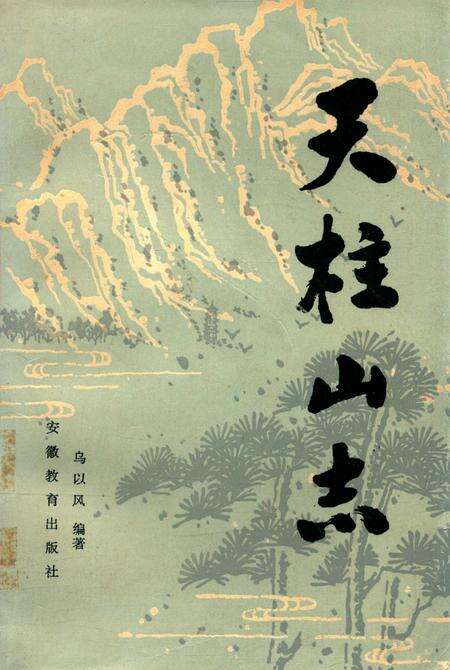 天柱山志
乌以风 编著
安徽教育出版社